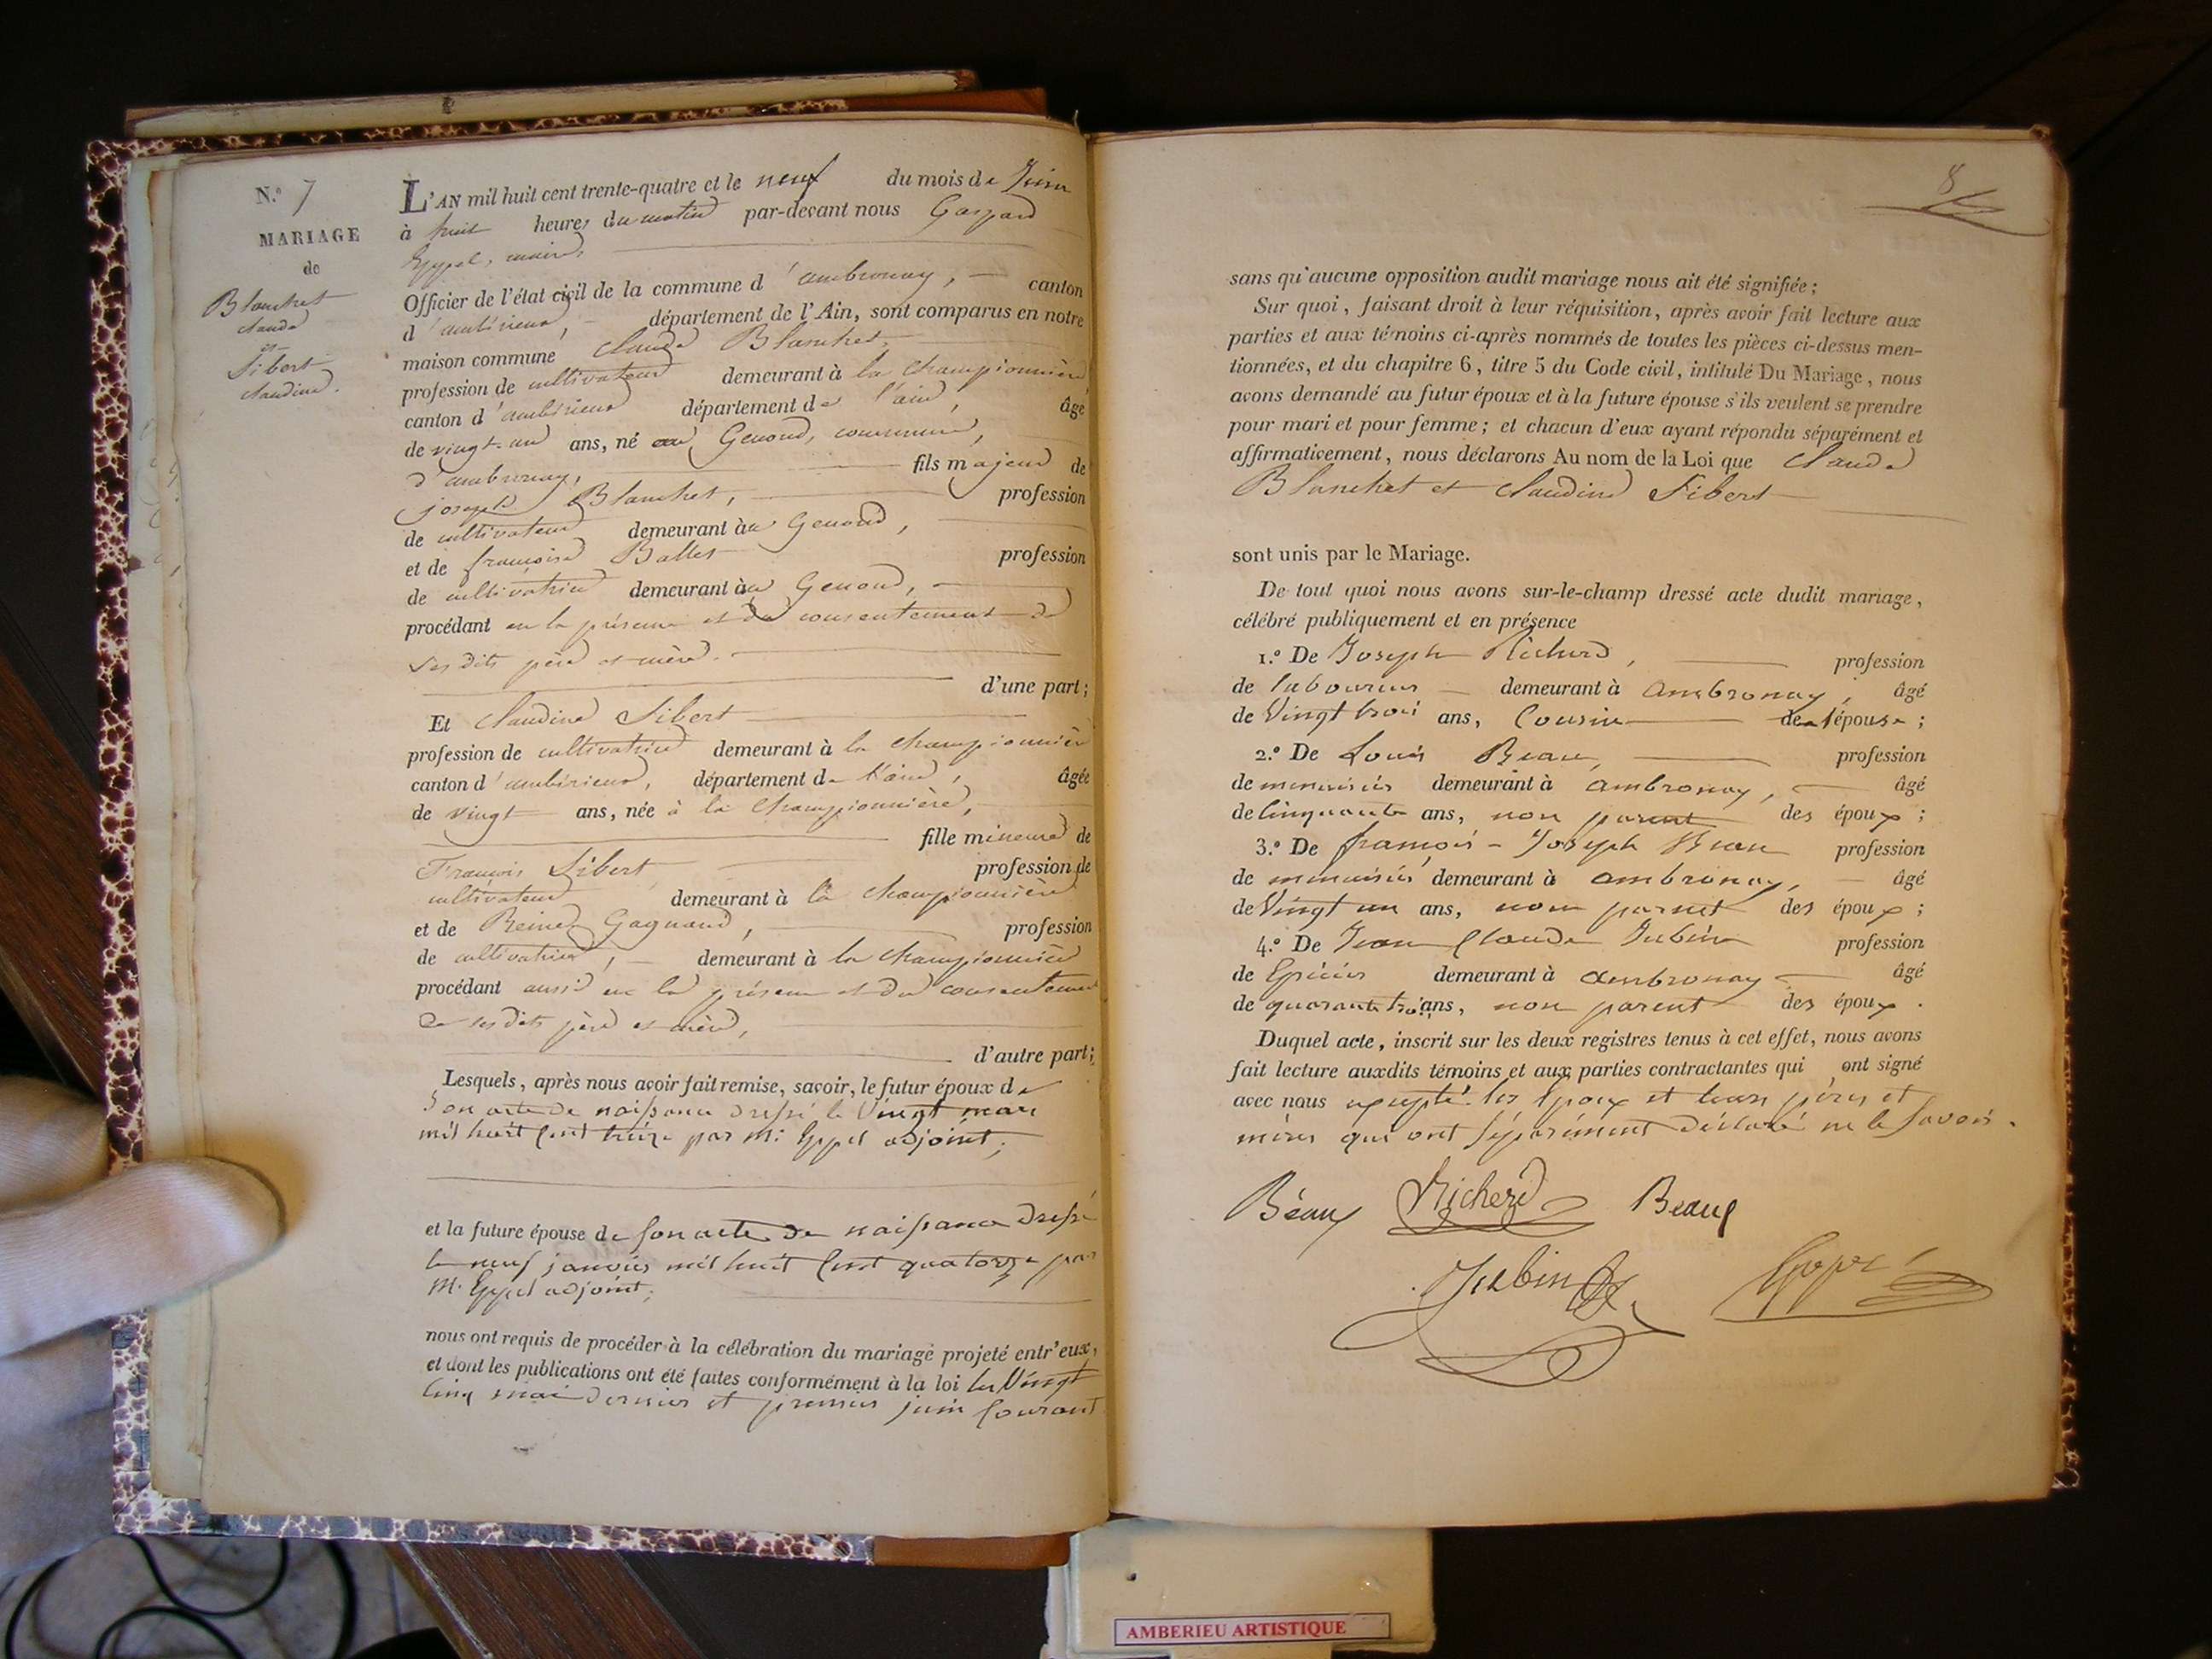 N.° 7
MARIAGE
de
Blanchet
claude
et
Sibert
claudine.
L'AN mil huit cent trente-quatre et le neuf du mois de Juin
à huit heures du matin par-devant nous Gaspard
Eppel, maire,
Officier de l'état civil de la commune d'ambronay, canton
d'ambérieux, département de l'Ain, sont comparus en notre
maison commune claude Blanchet,
profession de cultivateur demeurant à la championnière
canton d'ambérieux département de l'ain, âgé
de vingt-un ans, né au Genoud, commune,
d'ambronay, fils majeur de
joseph Blanchet, profession
de cultivateur demeurant àu Genoud,
et de françoise Ballet profession
de cultivatrice demeurant àu Genoud,
procédant en la présence et du consentement de
ses dits père et mère.
d'une part;
Et claudine Sibert
profession de cultivatrice demeurant à la championnière
canton d'ambérieux, département de l'ain, âgée
de vingt ans, née à la championnière,
fille mineure de
François Sibert profession de
cultivateur demeurant à la championnière
et de Reine Gagnard, profession
de cultivatrice, demeurant à la championnière
procédant aussi en la présence et du consentement
de ses dits père et mère,
d'autre part;
Lesquels, après nous avoir fait remise, savoir, le futur époux de
Son acte de naissance dressé le Vingt mars
mil huit cent treize par M. Eppel adjoint;
et la future épouse de son acte de naissance dressé
le neuf janvier mil huit cent quatorze par
M. Eppel adjoint;
nous ont requis de procéder à la célébration du mariage projeté entr'eux,
et dont les publications ont été faites conformément à la loi les Vingt
cinq mai dernier et premier juin courant
8
sans qu'aucune opposition audit mariage nous ait été signifiée;
Sur quoi, faisant droit à leur réquisition, après avoir fait lecture aux
parties et aux témoins ci-après nommés de toutes les pièces ci-dessus men-
tionnées, et du chapitre 6, titre 5 du Code civil, intitulé Du Mariage, nous
avons demandé au futur époux et à la future épouse s'ils veulent se prendre
pour mari et pour femme; et chacun d'eux ayant répondu séparément et
affirmativement, nous déclarons Au nom de la Loi que Claude
Blanchet et claudine Sibert
sont unis par le Mariage.
De tout quoi nous avons sur-le-champ dressé acte dudit mariage,
célébré publiquement et en présence
1.° De Joseph Richerd, profession
de laboureur demeurant à Ambronay, âgé
de Vingt trois ans, Cousin de l'épouse;
2.° De Louis Beau, profession
de menuisier demeurant à ambronay, âgé
de Cinquante ans, non parent des époux;
3.° De françois-Joseph Beau profession
de menuisier demeurant à ambronay, âgé
de Vingt un ans, non parent des époux;
4.° De Jean Claude Jubin profession
de Epicier demeurant à ambronay âgé
de quarante trois ans, non parent des époux.
Duquel acte, inscrit sur les deux registres tenus à cet effet, nous avons
fait lecture auxdits témoins et aux parties contractantes qui ont signé
avec nous excepté les époux et leurs pères et
mères qui ont séparément déclaré ne le savoir.
Béaux Richerd Beaux
Jubin Eppel
AMBERIEU ARTISTIQUE